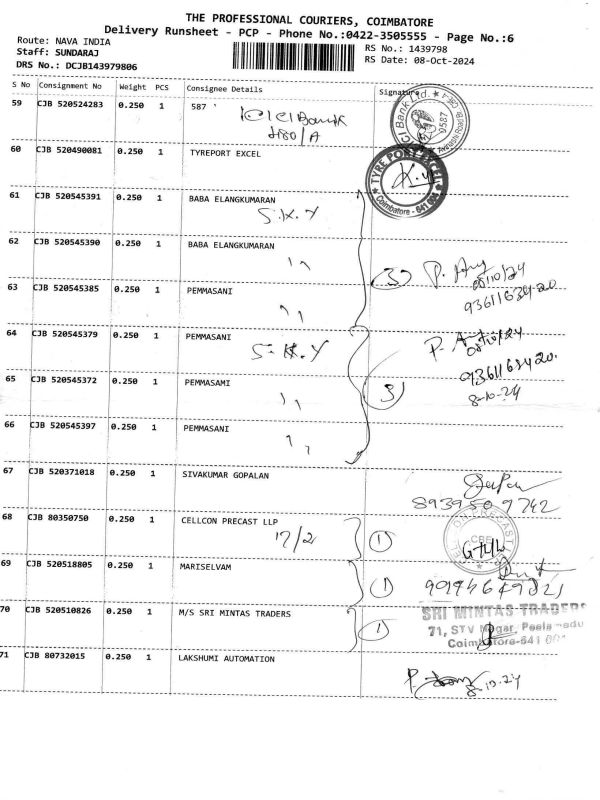 THE PROFESSIONAL COURIERS, COIMBATORE
Delivery Runsheet - PCP - Phone No.:0422-3505555 - Page No.:6
Route: NAVA INDIA
RS No.: 1439798
Staff: SUNDARAJ
RS Date: 08-Oct-2024
DRS No.: DCJB143979806
S No Consignment No Weight PCS Consignee Details Signature
59 CJB 520524283 0.250 1 587
ICICI Bank
0587
60 CJB 520490081 0.250 1 TYREPORT EXCEL
TYRE PORT EXCEL
Coimbatore - 641 004
61 CJB 520545391 0.250 1 BABA ELANGKUMARAN
S.K.Y
62 CJB 520545390 0.250 1 BABA ELANGKUMARAN
" 3 08/10/24
63 CJB 520545385 0.250 1 PEMMASANI
"
64 CJB 520545379 0.250 1 PEMMASANI
S.K.Y 08/10/24
65 CJB 520545372 0.250 1 PEMMASAMI
" 3 8-10-24
66 CJB 520545397 0.250 1 PEMMASANI
"
67 CJB 520371018 0.250 1 SIVAKUMAR GOPALAN
8939509742
68 CJB 80350750 0.250 1 CELLCON PRECAST LLP
17/2 1
CBE
69 CJB 520518805 0.250 1 MARISELVAM
1
70 CJB 520510826 0.250 1 M/S SRI MINTAS TRADERS
1
SRI MINTAS TRADERS
71, STV Nagar, Peelamedu
Coimbatore-641
71 CJB 80732015 0.250 1 LAKSHUMI AUTOMATION
8.10.24